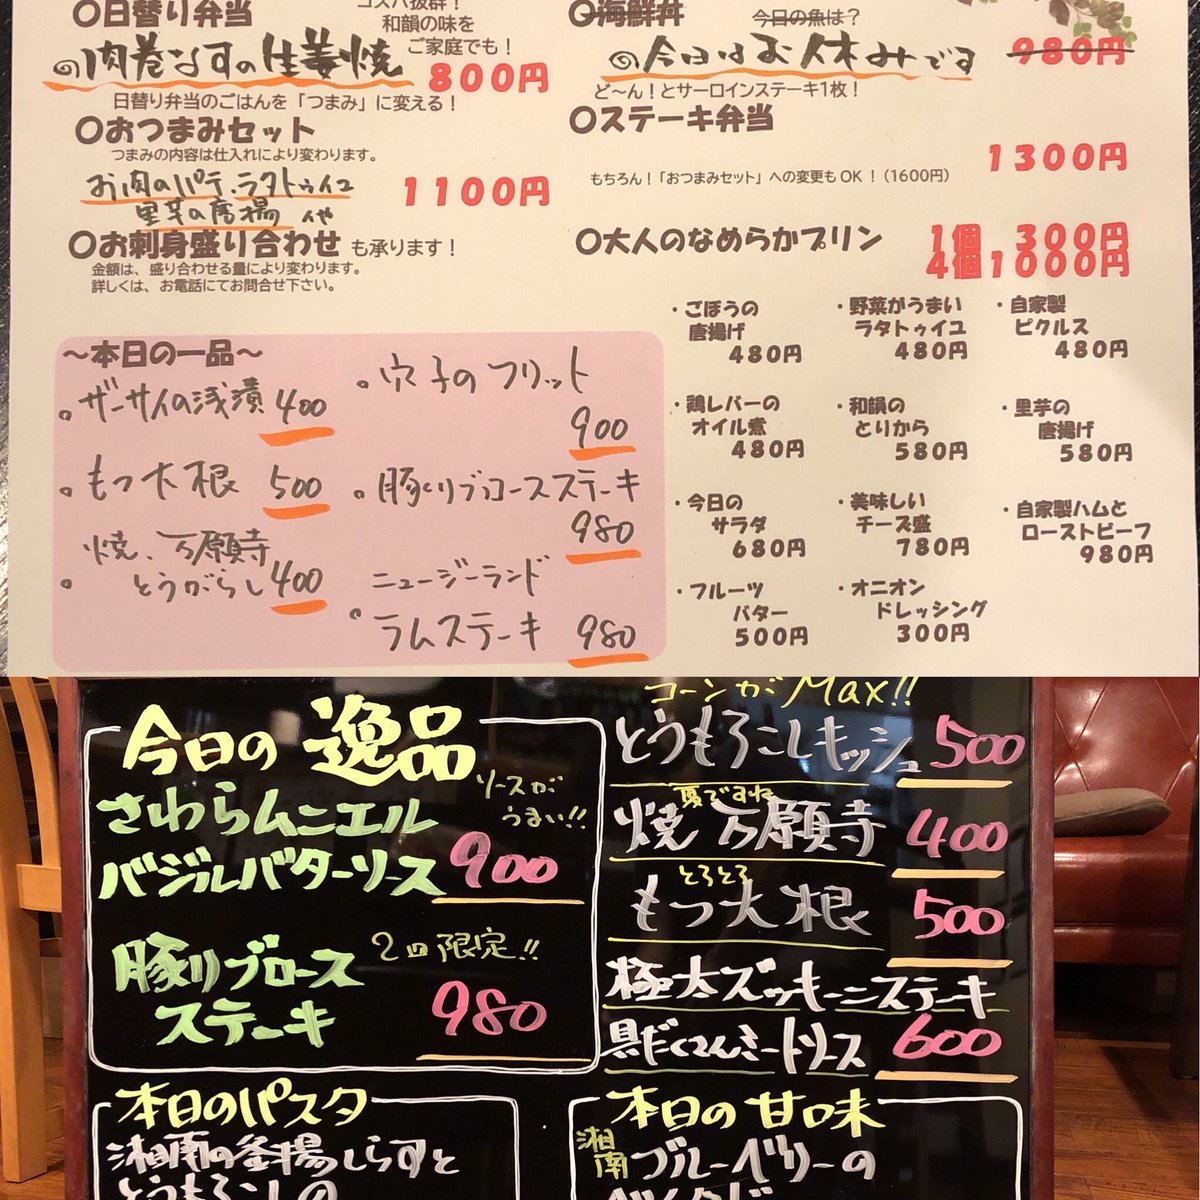 〇日替り弁当
コスパ抜群！
和韻の味を
ご家庭でも！
の肉巻なすの生姜焼
800円
日替り弁当のごはんを「つまみ」に変える！
〇おつまみセット
つまみの内容は仕入れにより変わります。
お肉のパテ、ラタトゥイユ
里芋の唐揚
1100円
〇お刺身盛り合わせ も承ります！
金額は、盛り合わせる量により変わります。
詳しくは、お電話にてお問合せ下さい。
〇海鮮丼
今日の魚は？
の今日はお休みです
980円
ど〜ん！とサーロインステーキ1枚！
〇ステーキ弁当
1300円
もちろん！「おつまみセット」への変更もOK！（1600円）
〇大人のなめらかプリン
1個 300円
4個1000円
〜本日の一品〜
。ザーサイの浅漬 400
。もつ大根 500
焼、万願寺
。とうがらし 400
。穴子のフリット
900
。豚リブロースステーキ
980
ニュージーランド
。ラムステーキ 980
・ごぼうの
唐揚げ
480円
・野菜がうまい
ラタトゥイユ
480円
・自家製
ピクルス
480円
・鶏レバーの
オイル煮
480円
・和韻の
とりから
580円
・里芋の
唐揚げ
580円
・今日の
サラダ
680円
・美味しい
チーズ盛
780円
・自家製ハムと
ローストビーフ
980円
・フルーツ
バター
500円
・オニオン
ドレッシング
300円
今日の逸品
さわらムニエル
ソースが
うまい!!
バジルバターソース 900
豚リブロース
2回限定!!
ステーキ 980
コーンがMax!!
とうもろこしキッシュ 500
夏ですね
焼 万願寺 400
とろとろ
もつ大根 500
極太ズッキーニステーキ
具だくさんミートソース 600
本日のパスタ
湘南の釜揚しらすと
とうもろこしの
本日の甘味
湘南
ブルーベリーの